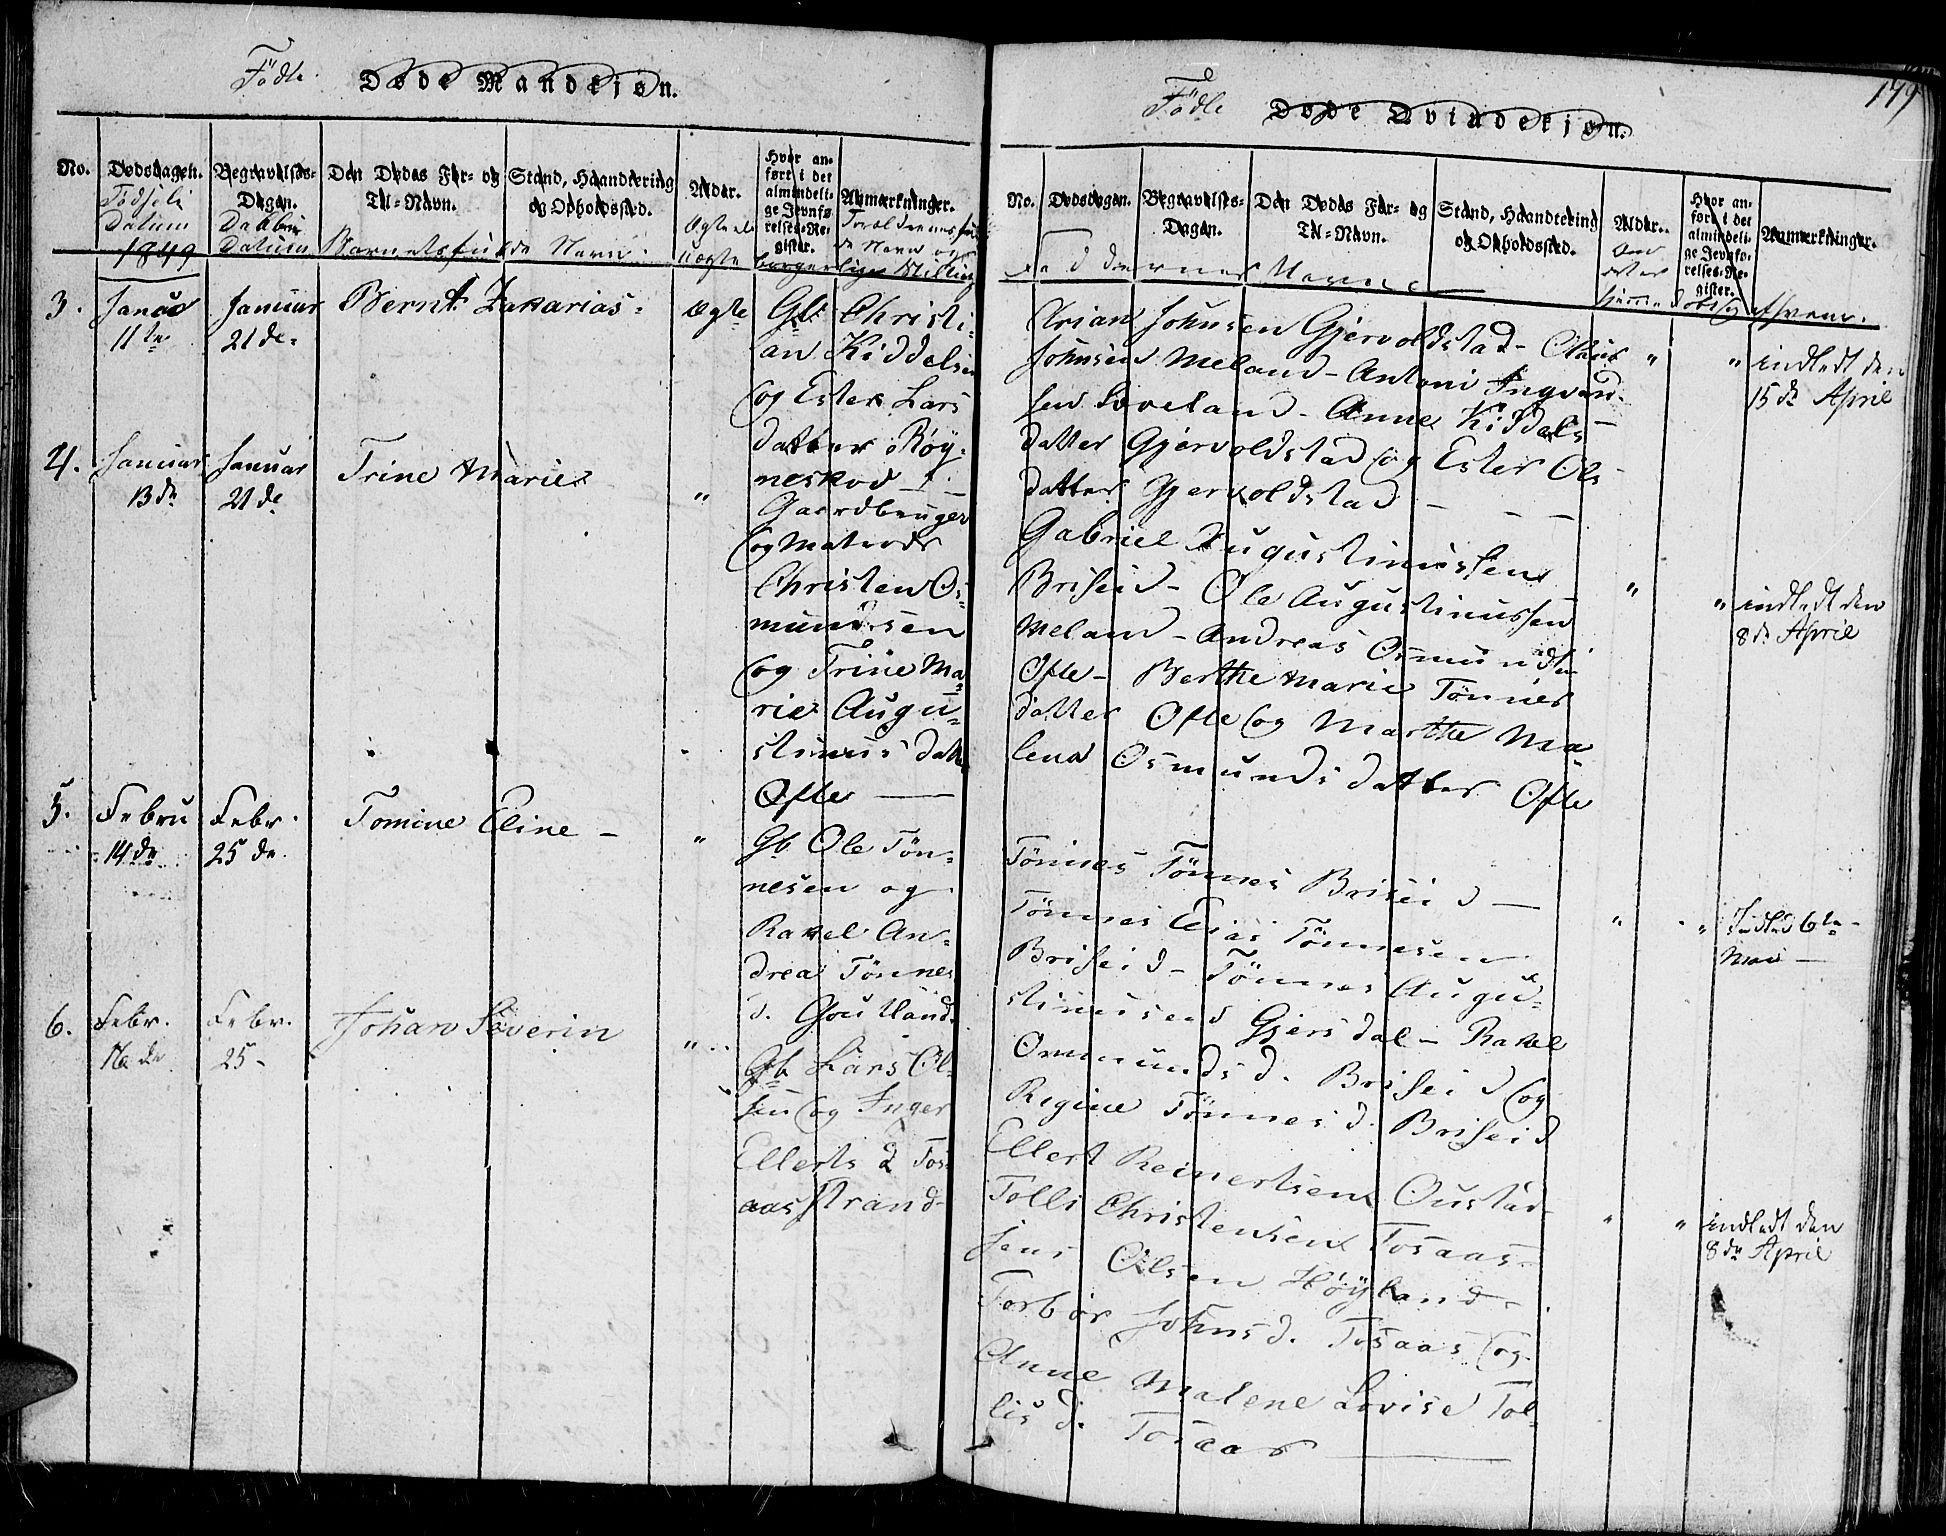 Födte
Døde Mandkjøn.
No.
Dødsdagen.
Begravelses-
Dagen.
Den Dødes For- og
Til-Navn.
Stand, Haandtering
og Opholdssted.
Alder.
Hvor an-
ført i det
almindeli-
ge Jevnfø-
relses-Re-
gister.
Anmerkninger.
Datum
Datum
1849
Barnets fulde Navn.
Uægte
borgerlige Stilling
3.
Januar
11te
Januar
21de
Bernt Zakarias
Ægte
Gb Christi-
an Kiddelsen
og Ester Lars
datter Røy-
neskod
4.
Januar
13de
Januar
21de
Trine Marie
"
Gaardbruger
og Matrods
Christen Os-
mundsen
og Trine Ma-
rie Augu-
stinus datter
Ofte
5.
Febru
14de
Febr.
25de
Tomine Eline
"
Gb Ole Tön-
nesen og
Rakel An-
drea Tönnes
d.
6.
Febr.
16de
Febr.
25
Johan Severin
"
Gb Lars Ol-
sen og Inger
Ellerts d Tos-
aasstrand
179
Födte
Døde Qvindekjøn.
No.
Dødsdagen.
Begravelses-
Dagen.
Den Dødes For- og
Til-Navn.
Stand, Haandtering
og Opholdssted.
Alder.
Hvor an-
ført i det
almindeli-
ge Jevnfø-
relses-Re-
gister.
Anmerkninger.
Faddernes Navne
Arian Johnsen Gjervoldstad - Claus
Johnsen Meland - Antoni Ingvald-
sen Loveland - Anne Kiddels-
datter Gjervoldstad og Ester Ols-
datter Gjervoldstad
"
"
indledt den
15de April
Gabriel Augustinussen
Briseid - Ole Augustinussen
Meland - Andreas Osmundsen
Ofte - Berthe Marie Tönnes
datter Ofte og Marthe Ma-
lena Osmundsdatter Ofte
"
"
indledt den
8de April
Tönnes Tönnes Briseid
Tönnes Elias Tönnesen
Briseid - Tönnes Augu-
stinusen Gjersdal - Rakel
Ommunds d. Briseid og
Regine Tönnes d. Briseid
"
"
Indled 6te
Mai
Ellert Reinertsen Oustad
Tolli Christensen Tosaas
Jens Olsen Höyland
Torbör Johns d. Tosaas og
Anne Malene Lovise Tol-
lis d. Tosaas
"
"
indledt den
8de April